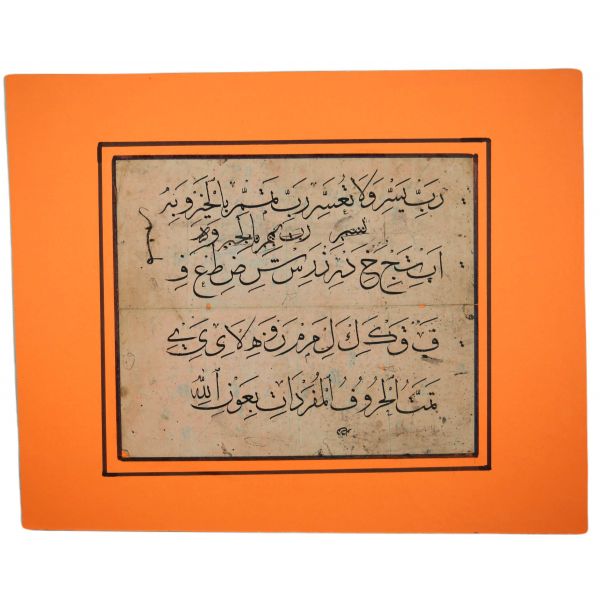 رَبِّ يَسِّرْ وَلَا تُعَسِّرْ رَبِّ تَمِّمْ بِالْخَيْرِ وَبِهِ
رب تمم بالخير ولا
ا ب ت ث ج ح خ د ذ ر ز س ش ص ض ط ظ ع غ ف
ق ك ل م ن و ه لا ي
تَمَّتِ الْحُرُوفُ الْمُفْرَدَاتِ بِعَوْنِ اللّٰه